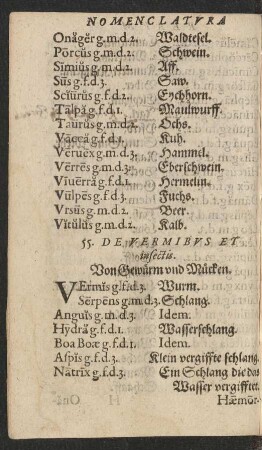 NOMENCLATVRA
Onăgĕr g.m.d.2. Waldtesel.
Pōrcŭs g.m.d.2. Schwein.
Sīmiŭs g.m.d.2. Aff.
Sūs g.f.d.3. Saw.
Sciūrŭs g.f.d.2. Eychhorn.
Tālpă g.f.d.1. Maulwurff.
Taurŭs g.m.d.2. Ochs.
Văccă g.f.d.1. Kuh.
Vērvēx g.m.d.3. Hammel.
Vērrēs g.m.d.3. Eberschwein.
Vīuērră g.f.d.1. Hermelin.
Vūlpēs g.f.d.3. Fuchs.
Vrsŭs g.m.d.2. Beer.
Vĭtŭlŭs g.m.d.2. Kalb.
55. DE VERMIBVS ET
insectis.
Von Gewürm vnd Mücken.
VErmĭs g.f.d.3. Wurm.
Sērpēns g.m.d.3. Schlang.
Anguĭs g.m.d.3. Idem.
Hydră g.f.d.1. Wasserschlang.
Boa Boæ g.f.d.1. Idem.
Aspĭs g.f.d.3. Klein vergiffte schlang.
Nātrīx g.f.d.3. Ein Schlang die das
Wasser vergifftet.
Hæmōr-